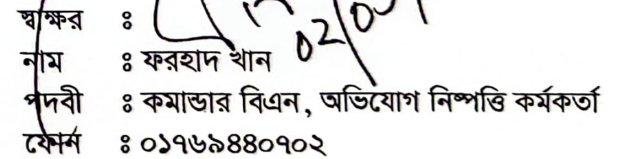 স্বাক্ষর :
নাম : ফরহাদ খান
পদবী : কমান্ডার বিএন, অভিযোগ নিষ্পত্তি কর্মকর্তা
ফোন : ০১৭৬৯৪৪০৭০২